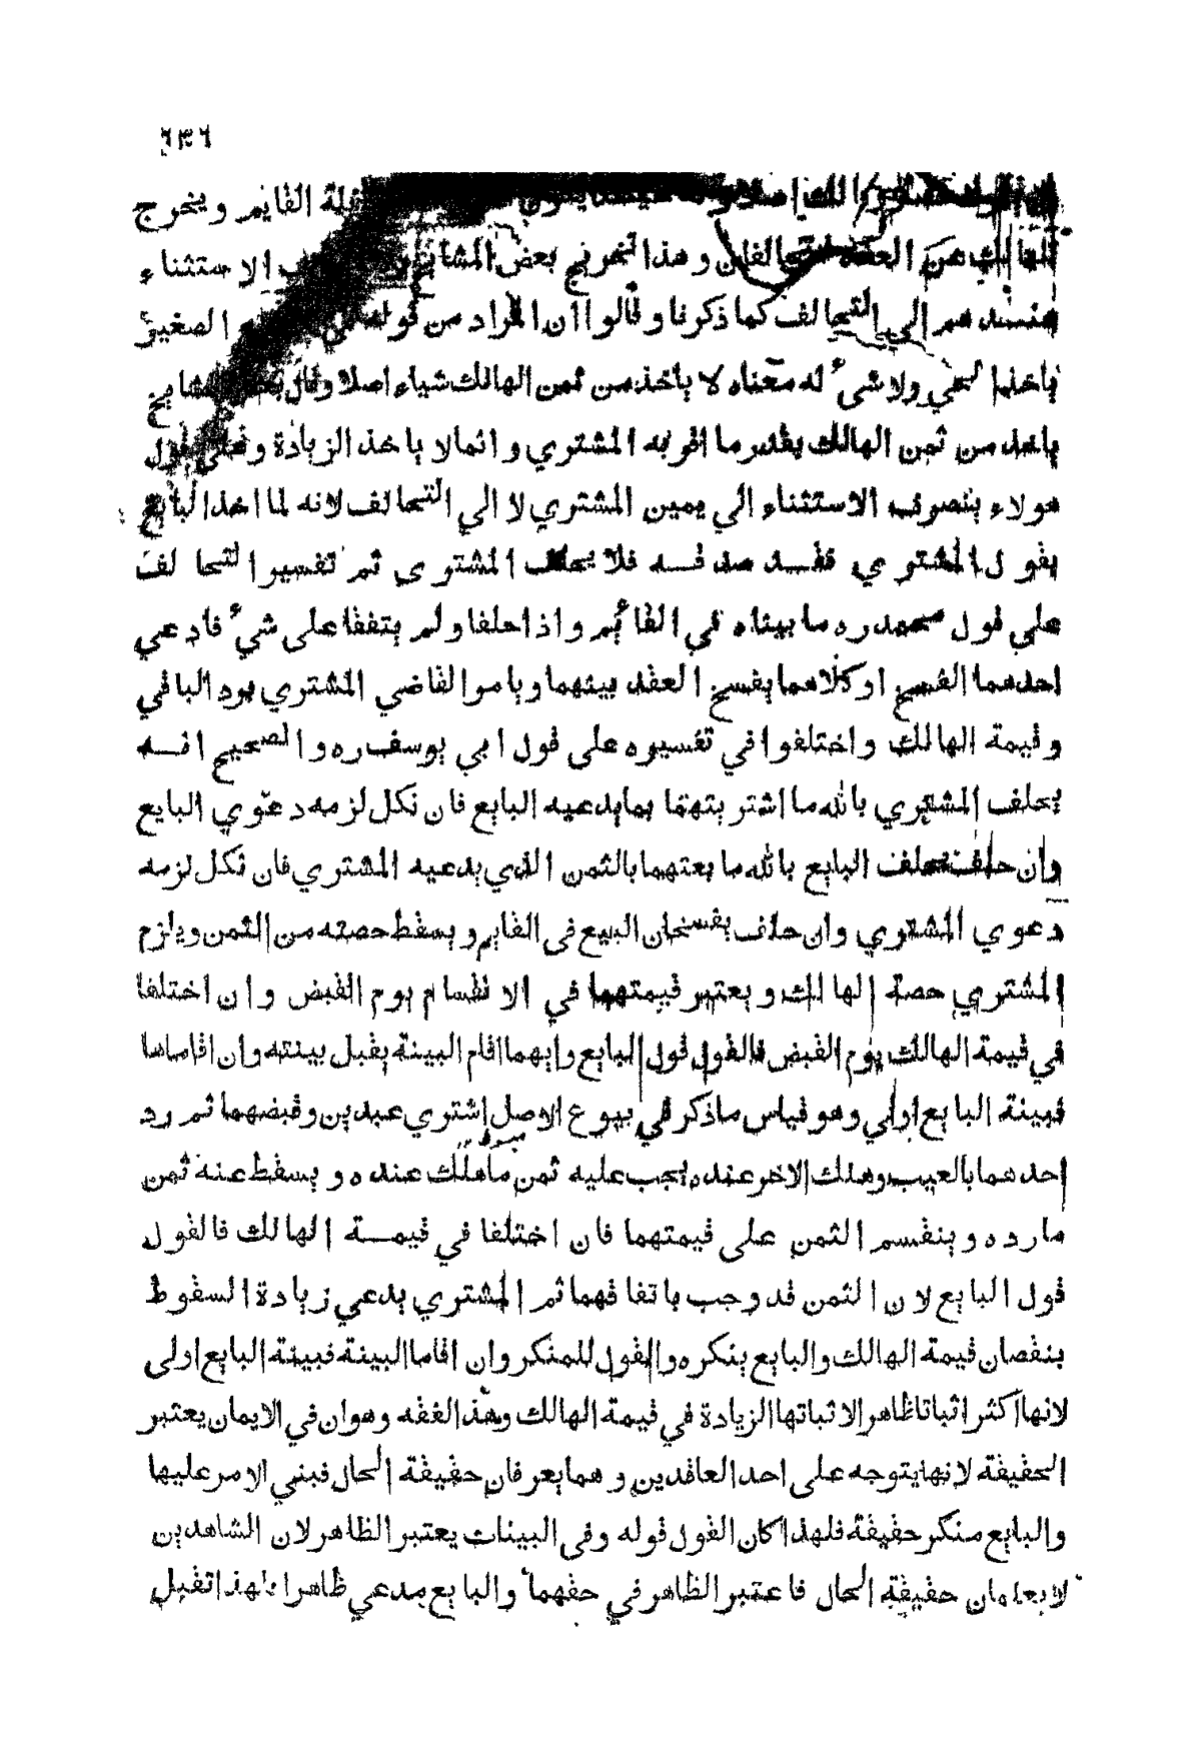 ٦٣٦
القايم ويخرج
الهالك عن العقد فيتحالفان وهذا تخريج بعض المشايخ الاستثناء
عندهم الي التحالف كما ذكرنا وقالوا ان المراد من قوله في الصغير
ياخذ الحي ولا شيء له معناه لا ياخذ من ثمن الهالك شياء اصلا وقال بعض المشايخ
ياخذ من ثمن الهالك بقدر ما اقر به المشتري وانما لا ياخذ الزيادة وعلي قول
هولاء ينصرف الاستثناء الي يمين المشتري لا الي التحالف لانه لما اخذ البايع
بقول المشتري فقد صدقه فلا يحلف المشتوي ثم تفسير التحالف
علي قول محمد ره ما بيناه في القائم واذا حلفا ولم يتفقا على شيء فادعي
احدهما الفسخ او كلاهما يفسخ العقد بينهما ويامر القاضي المشتري برد الباقي
وقيمة الهالك واختلفوا في تفسيره على قول ابي يوسف ره والصحيح انه
يحلف المشتري بالله ما اشتريتهما بما يدعيه البايع فان نكل لزمه دعوي البايع
وان حلف يحلف البايع بالله ما بعتهما بالثمن الذي يدعيه المشتري فان نكل لزمه
دعوي المشتري وان حلف يفسخان البيع في القايم ويسقط حصته من الثمن ويلزم
المشتري حصة الهالك ويعتبر قيمتهما في الانقسام يوم القبض وان اختلفا
في قيمة الهالك يوم القبض فالقول قول البايع وايهما اقام البينة يقبل بينته وان اقاماها
فبينة البايع اولي وهو قياس ما ذكر في بيوع الاصل اشتري عبدين وقبضهما ثم رد
احدهما بالعيب وهلك الاخر عنده يجب عليه ثمن ما هلك عنده ويسقط عنه ثمن
ما رده وينقسم الثمن علي قيمتهما فان اختلفا في قيمة الهالك فالقول
قول البايع لان الثمن قد وجب باتفاقهما ثم المشتري يدعي زيادة السقوط
بنقصان قيمة الهالك والبايع ينكره والقول للمنكر وان اقاما البينة فبينة البايع اولى
لانها اكثر اثباتا ظاهرا لاثباتها الزيادة في قيمة الهالك وهذا لفقه وهو ان في الايمان يعتبر
الحقيقة لانها يتوجه على احد العاقدين وهما يعرفان حقيقة الحال فبني الامر عليها
والبايع منكر حقيقة فلهذا كان القول قوله وفي البينات يعتبر الظاهر لان الشاهدين
لا يعلمان حقيقة الحال فاعتبر الظاهر في حقهما والبايع مدعي ظاهرا فلهذا تقبل